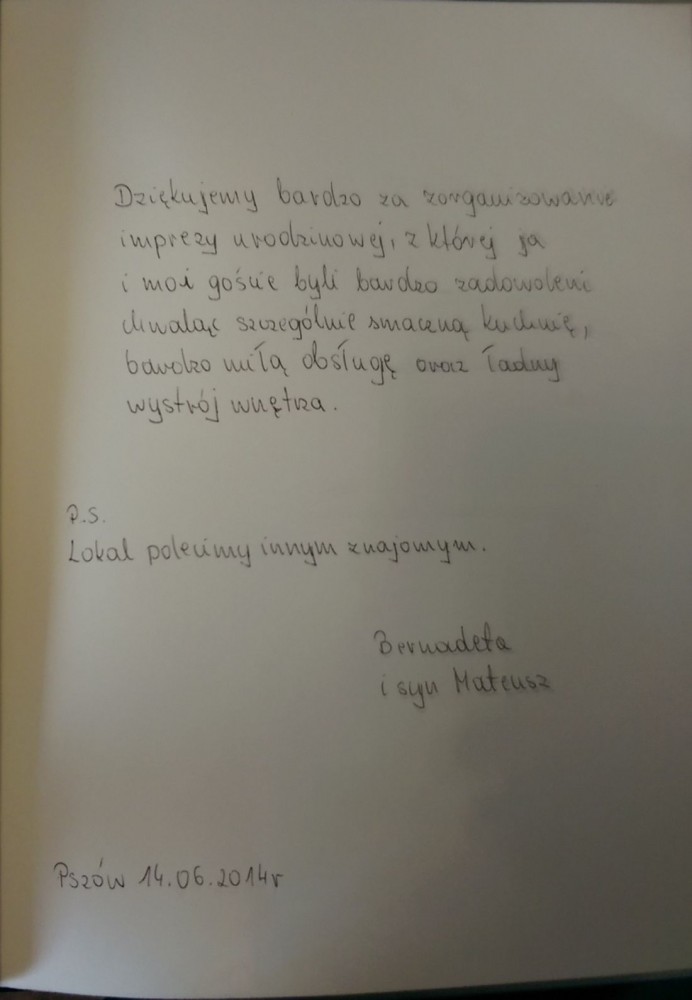 Dziękujemy bardzo za zorganizowanie
imprezy urodzinowej, z której ja
i moi goście byli bardzo zadowoleni
chwaląc szczególnie smaczną kuchnię,
bardzo miłą obsługę oraz ładny
wystrój wnętrza.
P.S.
Lokal polecimy innym znajomym.
Bernadeta
i syn Mateusz
Pszów 14.06.2014r